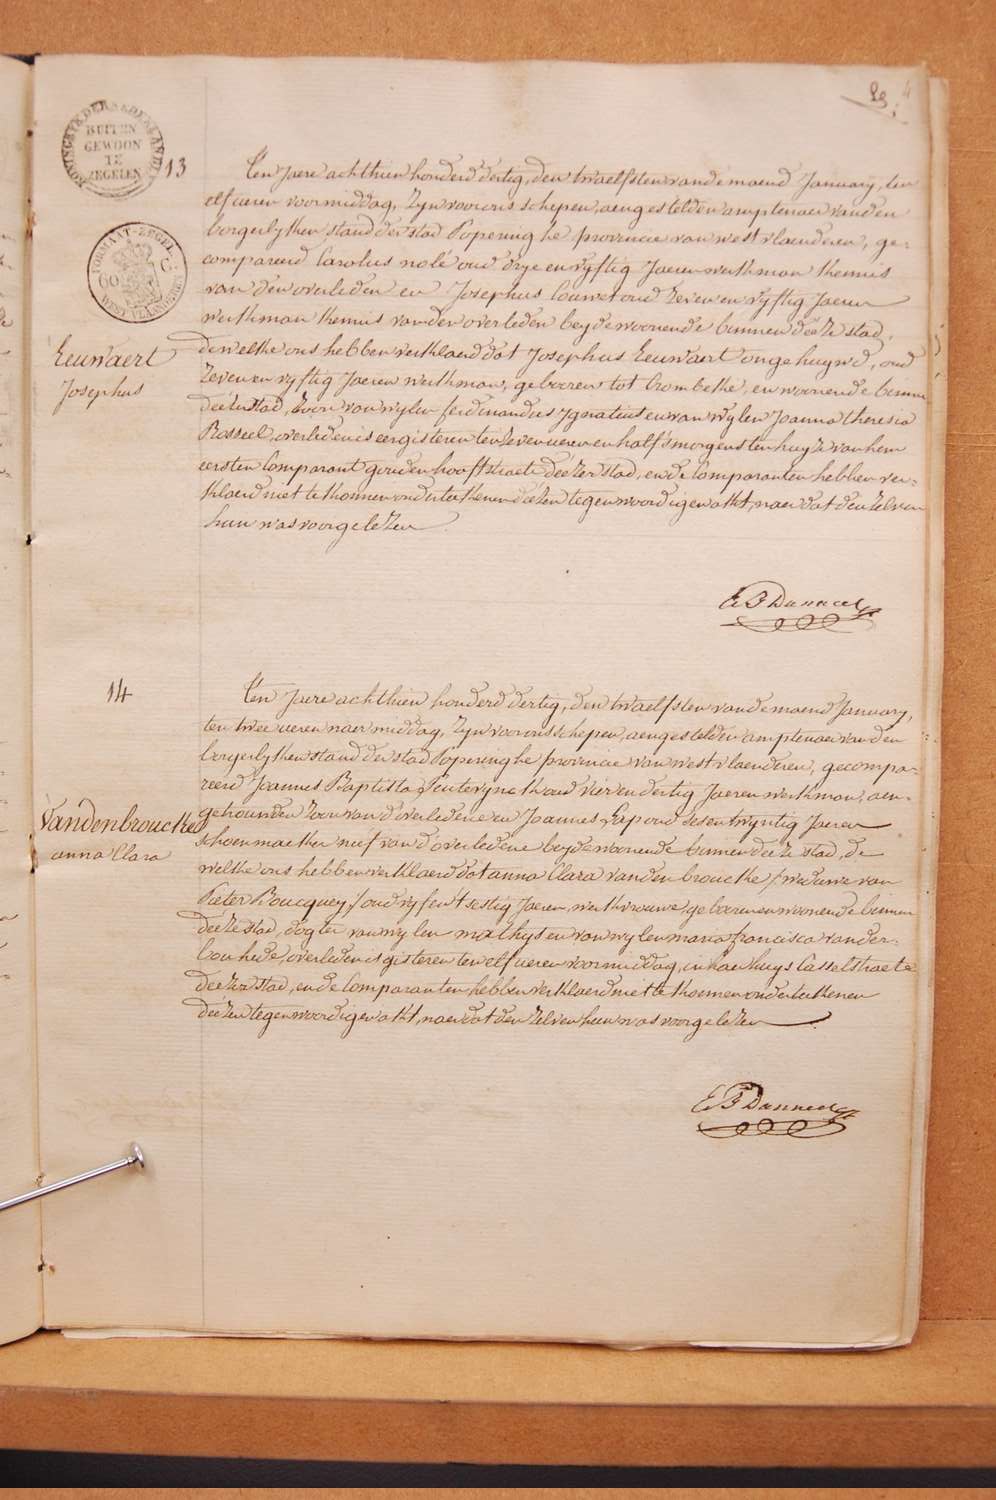 KONINGRYK DER NEDERLANDEN
BUITEN
GEWOON
TE
ZEGELEN
FORMAAT-ZEGEL
60 C
WEST VLAANDEREN
13
Ten Jaere achthien honderd dertig, den twaelfsten van de maend January, ten
elf ueren voormiddag, zyn voor ons schepen, aengestelden amptenaer van den
borgerlyken stand der stad Poperinghe provincie van westvlaenderen, ge-
compareerd Carolus nolé oud drye en vyftig Jaeren werkman kennis
van den overleden en Josephus Couwet oud zeven en vyftig Jaeren
werkman kennis van den overleden beyde woonende binnen deéze stad,
Eeuwaert
Josephus
dewelke ons hebben verklaerd dat Josephus Eeuwaert ongehuywd, oud
zeven en vyftig Jaeren werkman, gebooren tot Crombeke, en woonende binnen
deézen stad, zoon van wylen ferdinandus Ignatius en van wylen Joanna theresia
Rosseel, overleden is eergisteren ten zeven ueren en half s'morgens ten huyze van hem
eersten Comparant gouden hooft straete deézer stad, en de Comparanten hebben ver-
klaerd niet te konnen onderteekenen deézen tegenwoordigen akt, naer dat den zelven
hun was voorgelezen
14
Ten Jaere achthien honderd dertig, den twaelfsten van de maend January,
ten twee ueren naermiddag, zyn voor ons schepen, aengestelden amptenaer van den
borgerlyken stand der stad Poperinghe provincie van westvlaenderen, gecompa-
reerd Joannes Baptista oud vier en dertig Jaeren werkman, aen-
Vandenbroucke
anna Clara
getrouwden zoon van d'overledene en Joannes oud sesentwyntig Jaeren
schoenmaeker neef van d'overledene beyde woonende binnen deéze stad, de
welke ons hebben verklaerd dat anna Clara vanden broucke / weduwe van
Pieter Boucquey / oud vyf en t'sestig Jaeren, werkvrouwe, gebooren en woonende binnen
deéze stad, dogter van wylen mathys en van wylen maria francisca vander-
bouhede, overleden is gisteren ten elf ueren voormiddag, in haer huys Casselstraete
deézer stad, en de Comparanten hebben verklaerd niet te konnen onderteekenen
deézen tegenwoordigen akt, naer dat den zelven hun was voorgelezen